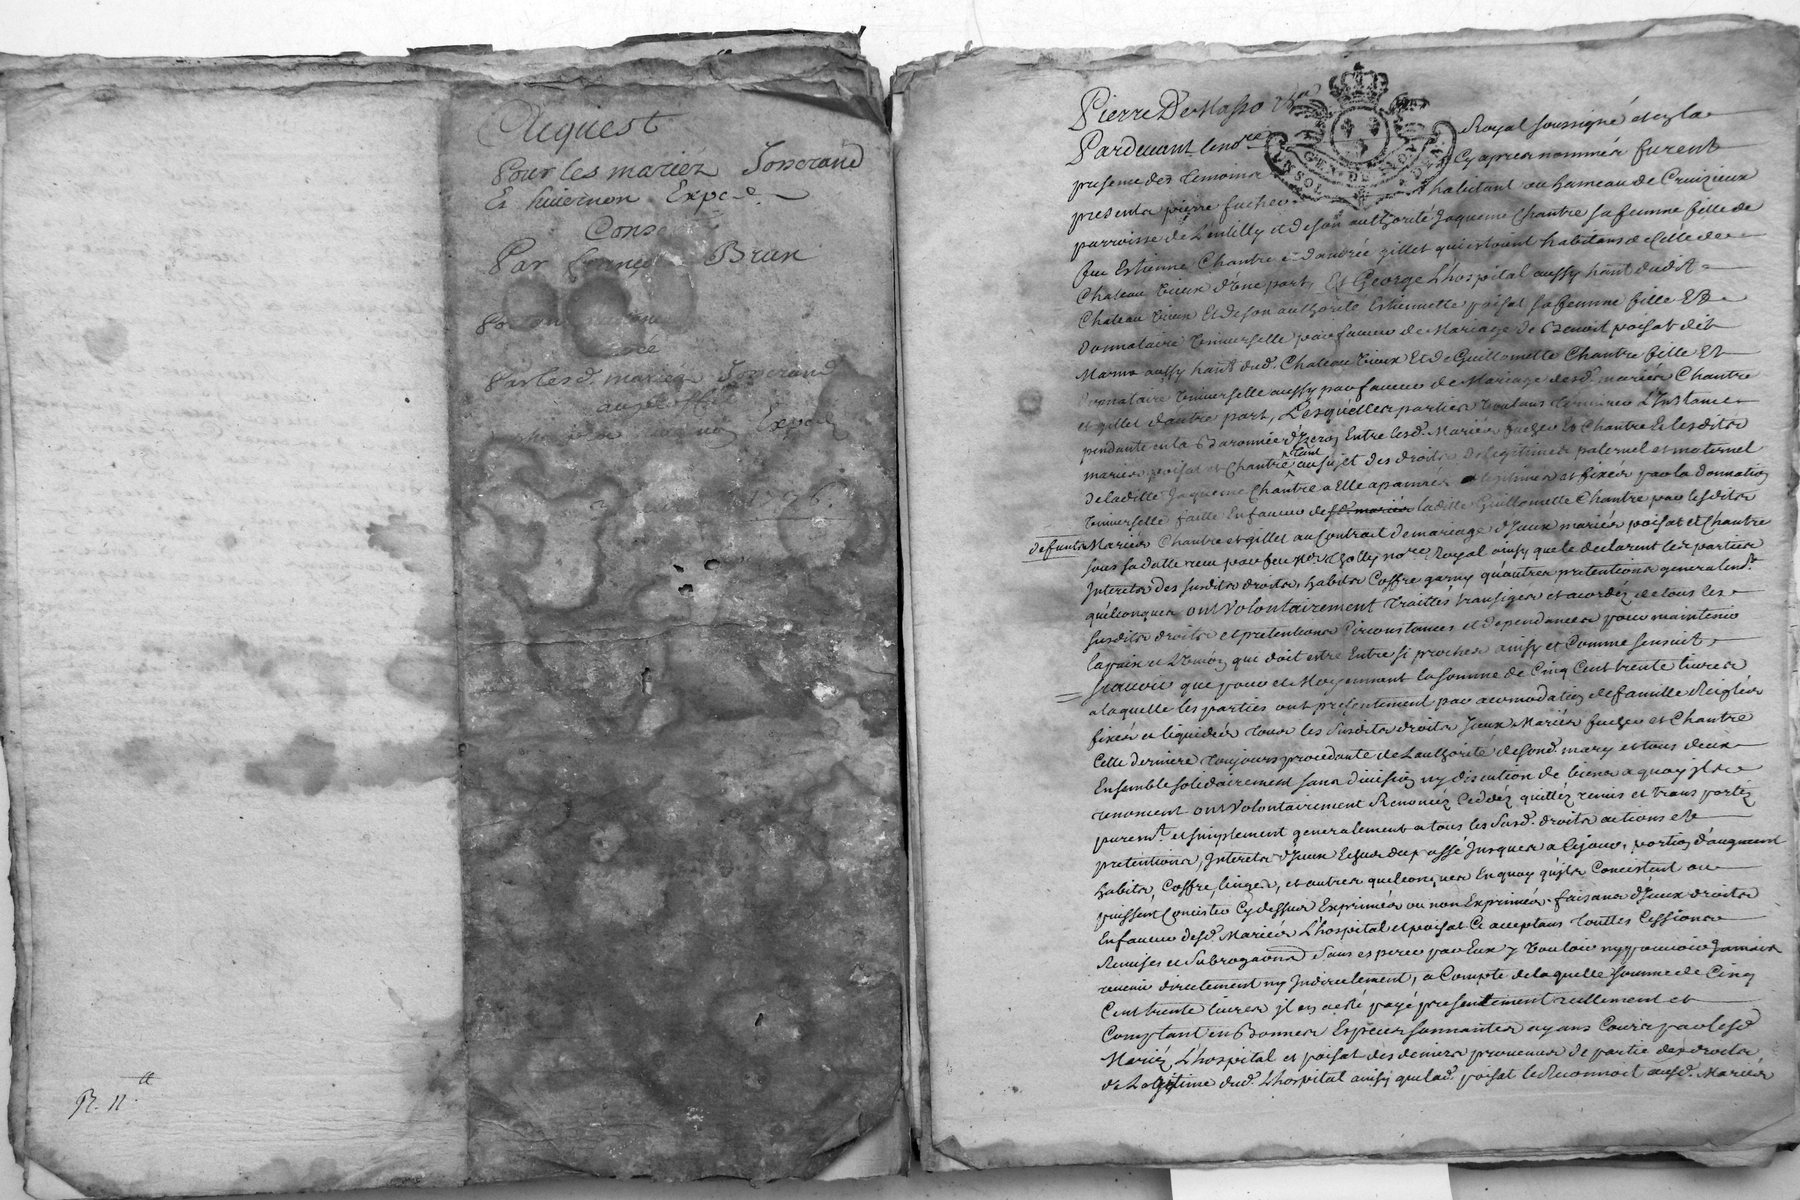 Acquest
Pour les mariéz Josserand
Et huiernon Exped.
Conse
Par Brun
Par les d. mariéz Josserand
Exped
1736.
97. 11.tt
Pierre De Masso
Pardeuant le no.re Royal soussigné et en la
presence des temoins Cy apres nommés furent
presents pierre fucher habitant au hameau de Cruizieux
parroisse de Lentilly et de son authorité Jaqueme Chantre sa femme fille de
feu Estienne Chantre et d'andrée gillet qui estoient habitans de Celle de
Chateau Vieux d'Vne part, Et George L'hospital aussy hant dudit
Chateau Vieux Et de son authorité Estiennette poisat sa femme fille Et
Donnataire Vniuerselle par faueur de Mariage de Benoit poisat dit
aussy hant dud. Chateau Vieux Et de Guillemette Chantre fille Et
Donnataire Vniuerselle aussy par faueur de Mariage desd. mariés Chantre
et gillet d'autre part, Lesquelles parties Voulans terminer L'Instance
pendante en la Baronnie d'Izeron Entre lesd. Mariés fucher Et Chantre Et lesdits
mariés poisat et Chantre tant au sujet des droits de legitimes paternel et maternel
de laditte Jaqueme Chantre a Elle aparnus et fixés par la donnation
Vniuerselle faitte En faueur desd. mariés laditte Guillemette Chantre par lesdits
defunts Mariés Chantre et gillet au Contrait de mariage d'Iceux mariés poisat et Chantre
sous sa datte receu par feu no.re Royal ainsy que le declarent les parties
Interets des susdits droits, habits Coffre garny qu'autres pretentions generalem.t
quelconques ont Volontairement traittés transigés et acordéz de tous les
susdits droits et pretentions Circonstances et dependances pour maintenir
la paix et L'Vnion qui doit estre Entre si proches ainsy et Comme sensuit,
sçauoir que pour et Moyennant la somme de Cinq Cent trente liures
a laquelle les parties ont presentement par acomodation de famille Reiglés
fixés et liquidés tous les susdits droits Iceux Mariés fucher et Chantre
Cette derniere toujours procedante de L'authorité de sond. mary et tous deux
Ensemble solidairement sans diuision ny discution de biens a quoy ils
renoncent ont Volontairement Renoncéz Ceddéz quittéz remis et transportéz
purem.t et simplement generalement a tous les susd. droits actions et
pretentions, Interets d'Iceux Echus du passé Jusques a Cejour, portion d'augment
habits, Coffre, linges, et autres quelconques En quoy qu'ils Concistent ou
puissent Concister Cy dessus Exprimés ou non Exprimés faisans d'Iceux droits
En faueur desd. Mariés L'hospital et poisat Ce acceptans touttes Cessions
Remises et Subrogations Sans esperer par Eux y Vouloir ny pouuoir Jamais
reuenir directement ny Indirectement, a Compte de laquelle somme de Cinq
Cent trente liures il en a esté payé presentement reellement et
Comptant en Bonnes Especes sonnantes ayans Cours par lesd.
Mariéz L'hospital et poisat des deniers prouenus de partie des droits
de Legitime dud. L'hospital ainsy que lad. poisat le Reconnoit ausd. Mariés